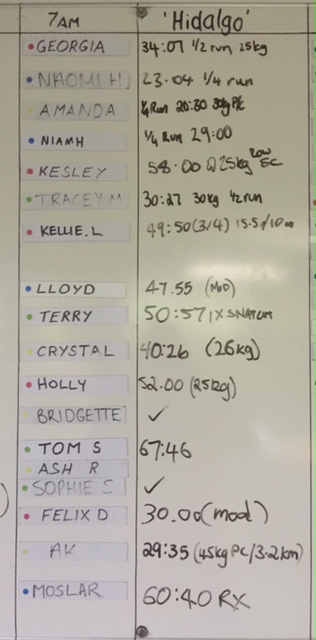 7AM 'Hidalgo'
GEORGIA 34:07 1/2 run 25kg
NAOMI H 23.04 1/4 run
AMANDA 1/4 Run 26:30 30kg PC
NIAMH 1/4 Run 29:00
KESLEY 58.00 @25kg Row SC
TRACEY M 30:27 30kg 1/2 run
KELLIE.L 49:50 (3/4) 15.5/10
LLOYD 47.55 (MOD)
TERRY 50:57 1X SNATCH
CRYSTAL 40:26 (26kg)
HOLLY 52.00 (25kg)
BRIDGETTE ✓
TOM S 67:46
ASH R
SOPHIE S ✓
FELIX D 30.00 (mod)
AK 29:35 (45kg PC/3.2km)
MOSLAR 60:40 RX